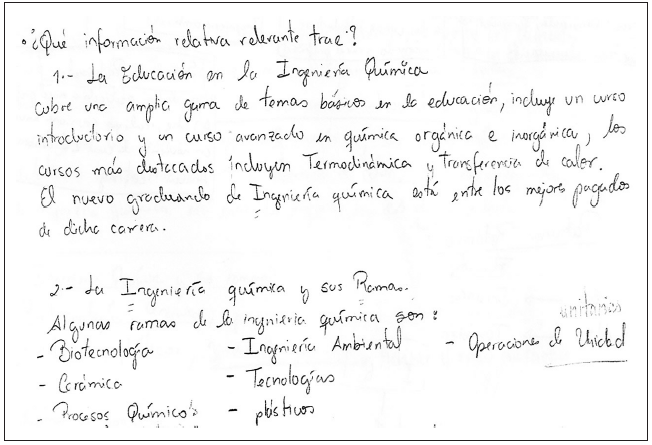 ¿Qué información relativa relevante trae?
1.- La Educación en la Ingeniería Química
Cubre una amplia gama de temas básicos en la educación, incluye un curso
introductorio y un curso avanzado en química orgánica e inorgánica, los
cursos más destacados incluyen Termodinámica y transferencia de calor.
El nuevo graduando de Ingeniería química está entre los mejores pagados
de dicha carrera.
2.- La Ingeniería química y sus Ramas.
Algunas ramas de la ingeniería química son:
unitarias
- Biotecnología - Ingeniería Ambiental - Operaciones de Unidad
- Cerámica - Tecnologías
- Procesos Químicos - plásticos